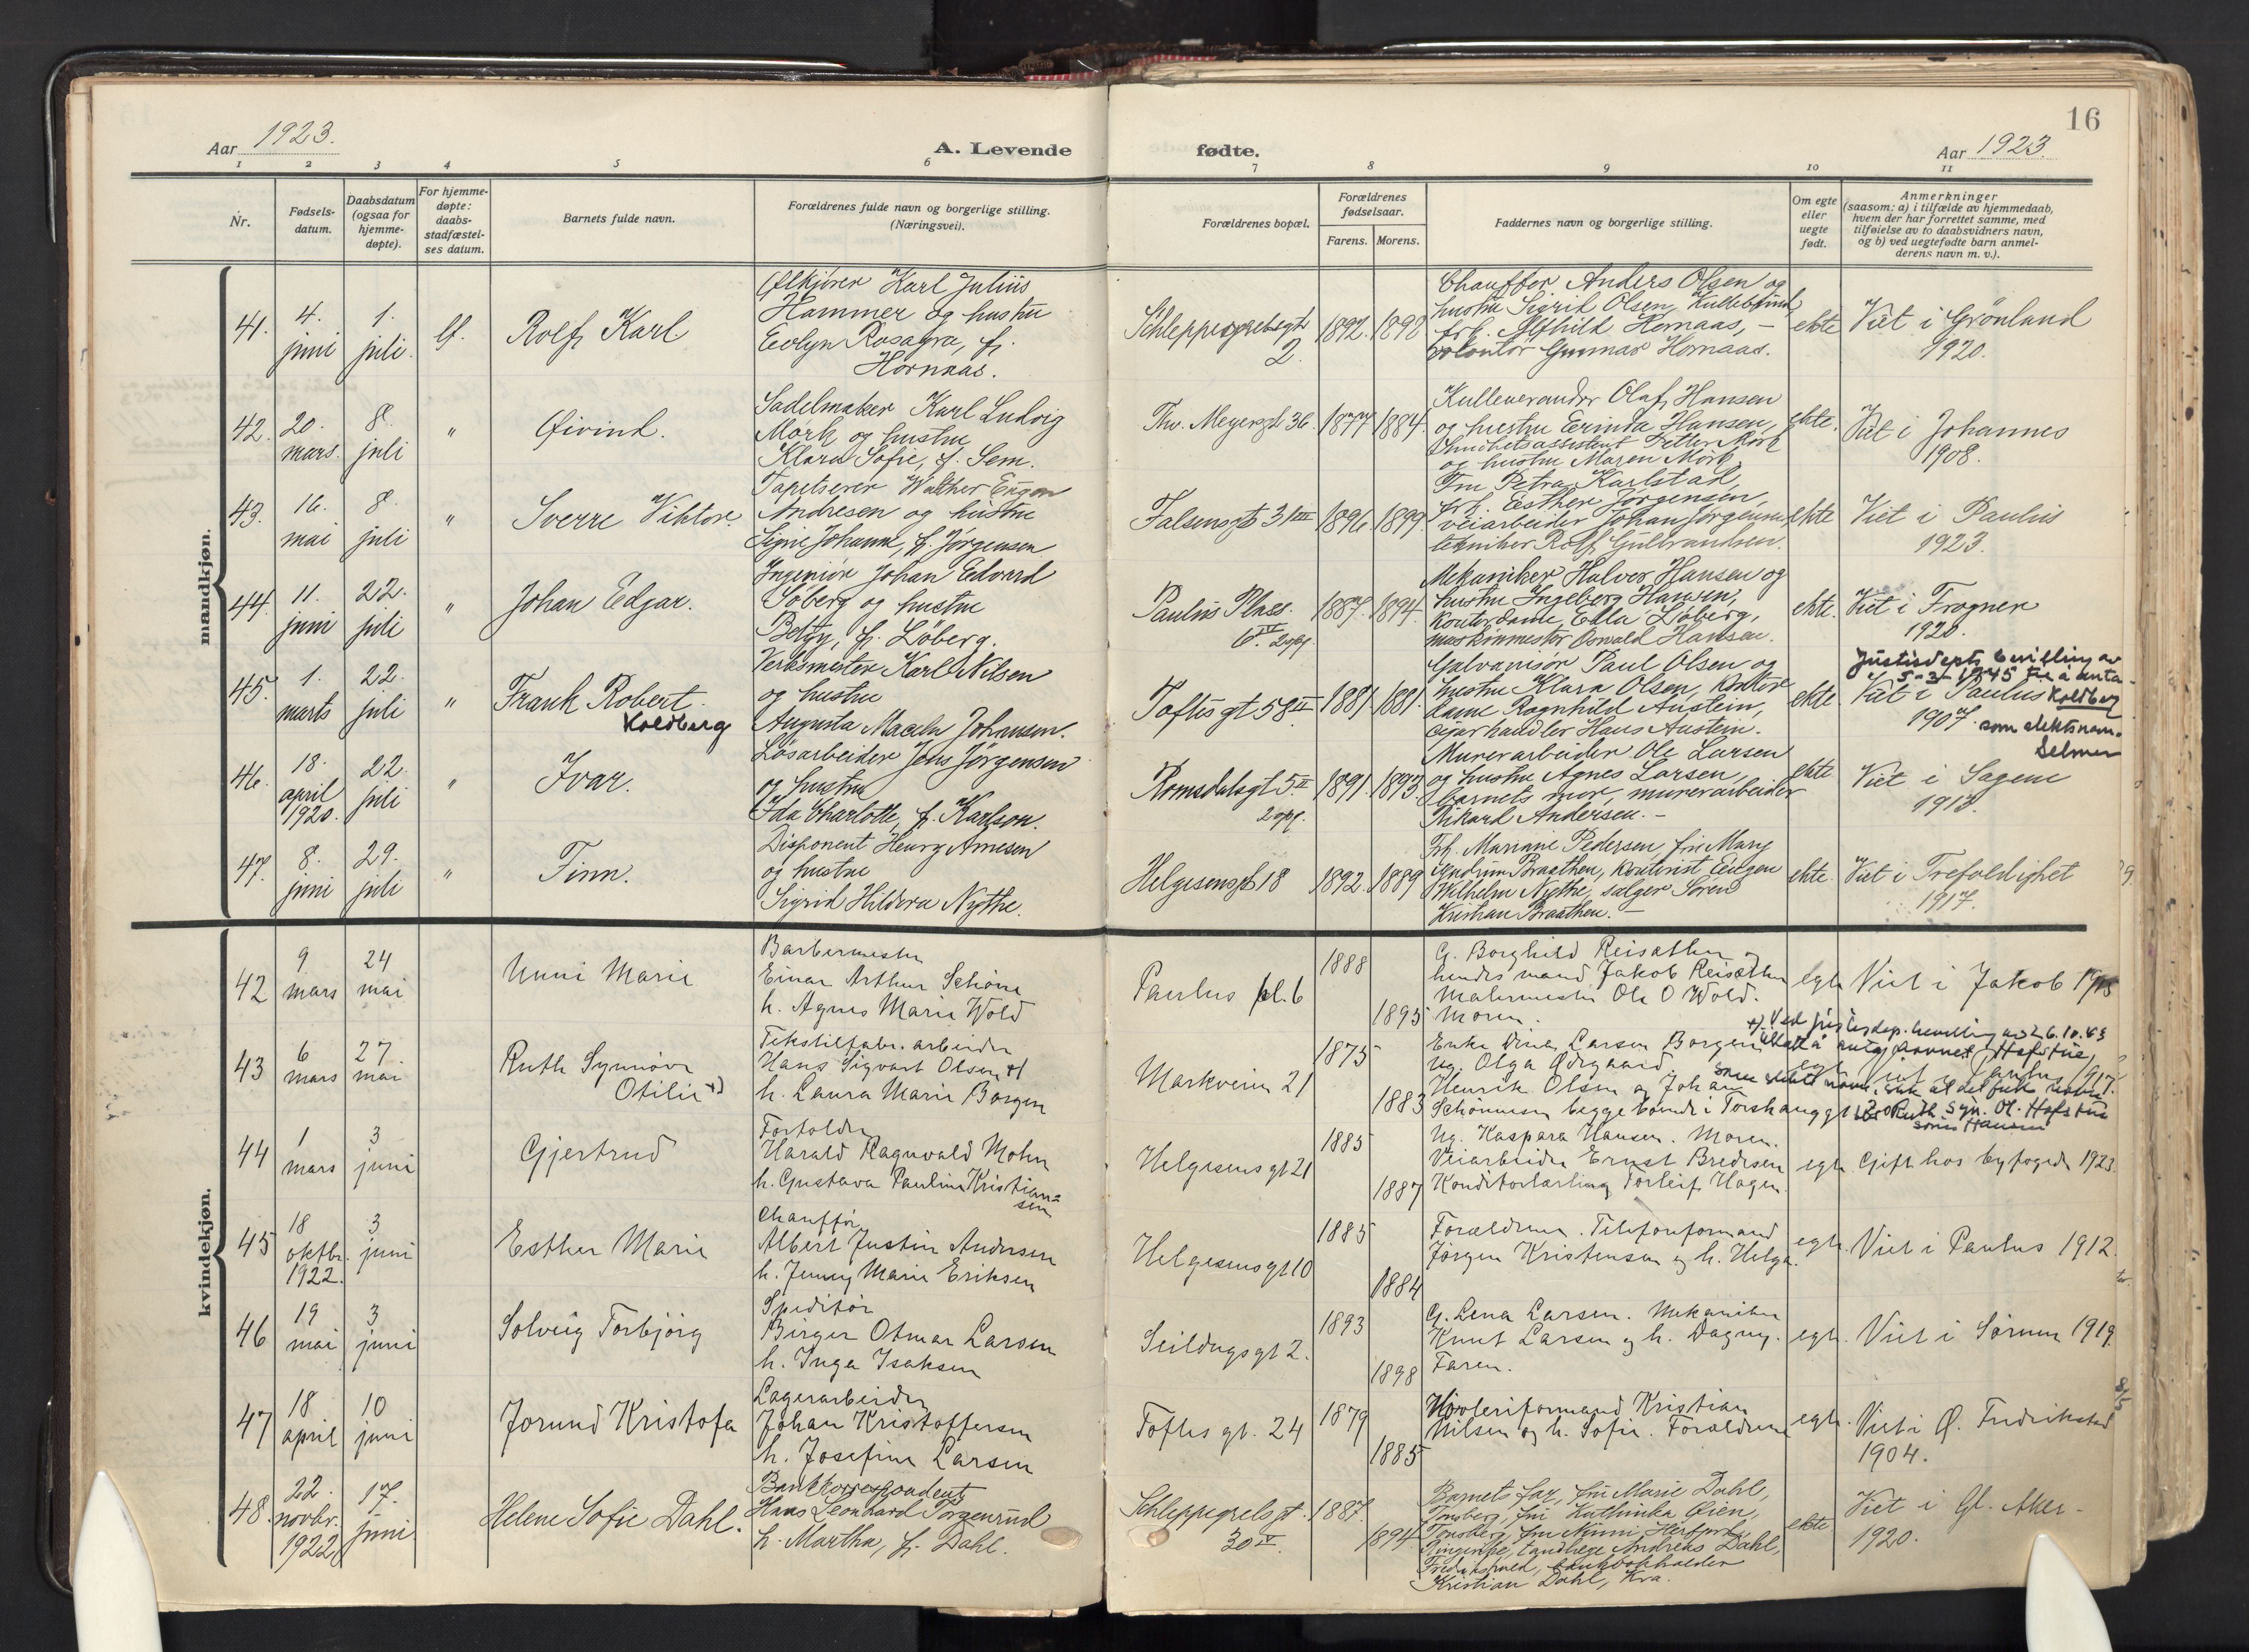 16
Aar 1923.
A. Levende
fødte.
Aar 1923.
1 2 3 4 5 6 7 8 9 10 11
Nr.
Fødsels-
datum.
Daabsdatum
(ogsaa for
hjemme-
døpte).
For hjemme-
døpte:
daabs-
stadfæstel-
ses datum.
Barnets fulde navn.
Forældrenes fulde navn og borgerlige stilling.
(Næringsvei).
Forældrenes bopæl.
Forældrenes
fødselsaar.
Farens. Morens.
Faddernes navn og borgerlige stilling.
Om egte
eller
uegte
født.
Anmerkninger
(saasom: a) i tilfælde av hjemmedaab,
hvem der har forrettet samme, med
tilføielse av to daabsvidners navn,
og b) ved uegtefødte barn anmel-
derens navn m. v.).
mandkjøn.
41.
4.
juni
1.
juli.
Rolf Karl
Ølkjører Karl Julius
Hammer og hustru
Evlyn Rosagra, f.
Hornaas.
Schleppegrelsgt
2.
1892. 1898
Chauffør Anders Olsen og
hustru Sigrid Olsen,
frk. Alfhild Hornaas, –
volontør Gunnar Hornaas.
ekte
Viet i Grønland
1920.
42.
20.
mars.
8.
juli
"
Øivind.
Sadelmaker Karl Ludvig
Mørk og hustru
Klara Sofie, f. Sem.
Thv. Meyersgt 36.
1877 1884.
Kulleverandør Olaf Hansen
og hustru Evinda Hansen,
Petter Mørk
og hustru Maren Mørk
ekte.
Viet i Johannes
1908.
43.
16.
mai
8.
juli
"
Sverre Viktor.
Tapetserer Walther Eugen
Andresen og hustru
Signe Johanne, f. Jørgensen
Falsensgt 31 III
1896 1899
Fru Petra Karlstad,
frk. Esther Jørgensen,
veiarbeider Johan Jørgensen,
tekniker Rolf Gulbrandsen.
ekte
Viet i Paulus
1923.
44.
11.
juni
22.
juli
"
Johan Edgar.
Ingeniør Johan Edvard
Soberg og hustru
Betzy, f. Løberg.
Paulus Plass.
6 IV 2 opg.
1887. 1894.
Mekaniker Halvor Hansen og
hustru Ingeborg Hansen,
Kontordame Ella Løberg,
maskinmester Osvald Hansen.
ekte.
Viet i Frogner
1920.
45.
1.
marts
22.
juli
"
Frank Robert.
Koldberg
Verksmester Karl Nilsen
og hustru
Augusta Magda Johansen.
Toftes gt 58 II
1881 1881.
Galvanisør Paul Olsen og
hustru Klara Olsen, kontor
dame Ragnhild Austein,
cigarhandler Hans Austein.
ekte.
Justisdepts bevilling av
5-3-1945 til å anta
Viet i Paulus Koldberg
1907. som slektsnavn.
Selmer
46.
18.
april
1920.
22.
juli
"
Ivar.
Løsarbeider Jens Jørgensen
og hustru
Ida Charlotte, f. Karlson.
Romsdalsgt 5 II
2 opg.
1891. 1893.
Murerarbeider Ole Larsen
og hustru Agnes Larsen,
barnets mor, murerarbeider
Rikard Andersen. –
ekte
Viet i Sagene
1918.
47.
8.
juni
29.
juli
"
Finn.
Disponent Henry Arnesen
og hustru
Sigrid Hildora Nythe.
Helgesensgt 18
1892. 1889
Frk. Mariane Pedersen, fru Mary
Gudrun Braathen, kontorist Eugen
Wilhelm Nythe, sælger Søren
Kristian Braathen. –
ekte.
Viet i Trefoldighet
1917.
kvindekjøn.
42
9
mars
24
mai
Unni Marie
Barbermester
Einar Arthur Schöne
h. Agnes Marie Wold
Paulus pl. 6
1888
1895
G. Borghild Reisæther og
hendes mand Jakob Reisæther
Malermester Ole O Wold.
Moren.
egte
Viet i Jakob 1915
43
6
mars
27.
mai
Ruth Synnøve
Otilie +)
Tekstilfabr. arbeider
Hans Sigvart Olsen +)
h. Laura Marie Borgen
Markveien 21
1875
1883
Enke Dina Larsen Borgen
Ug. Olga Ødegaard
Henrik Olsen og Johan
Schönnesen begge boende i Torshauggt 20
egte
+) Ved justisdep. bevilling av 26.10.43
tillatt å anta navnet Hofstue,
Viet i Paulus 1917.
som slektsnavn, slik at det fulle navn
blir Ruth Syn. Ot. Hofstue
44
1
mars
3
juni
Gjertrud
Fortolder
Harald Ragnvald Mohn
h. Gustava Pauline Kristian=
sen
Helgesens gt 21
1885
1887
Ug. Kaspara Hansen. Moren.
Veiarbeider Ernst Bredesen
Konditorlærling Torleif Hagen.
egte.
Gift hos byfogden 1923.
45
18
oktbr.
1922.
3
juni
Esther Marie
Chauffør
Albert Justin Andersen
h. Jenny Marie Eriksen
Helgesens gt 10
1885
1884
Forældrene. Telefonformand
Jørgen Kristensen og h. Helga.
egte.
Viet i Paulus 1912.
46
19
mai
3
juni
Solveig Torbjörg
Speditør
Birger Otmar Larsen
h. Inga Isaksen
Seildugsgt 2.
1893
1898
G. Lena Larsen. Mekaniker
Knut Larsen og h. Dagny.
Faren.
egte.
Viet i Sørum 1919.
47
18
april
10
juni
Jorund Kristofa
Lagerarbeider
Johan Kristoffersen
h. Josefine Larsen
Toftes gt. 24
1879
1885
Høvleriformand Kristian
Nilsen og h. Sofie. Forældrene
egte.
Viet i Ø. Fredrikstad
1904.
48.
22.
novbr.
1922
17.
juni
Helene Sofie Dahl.
Bankkorrespondent
Hans Leonhard Torgensrud
h. Martha, f. Dahl.
Schleppegrelsgt.
30 IV.
1887.
1894
Barnets far, fru Marie Dahl,
Tønsberg, fru Kathinka Øien,
Tønsberg, fru
tandlæge Andreas Dahl,
bankbokholder
Kristian Dahl, Kra.
ekte
Viet i Gl. Aker –
1920.